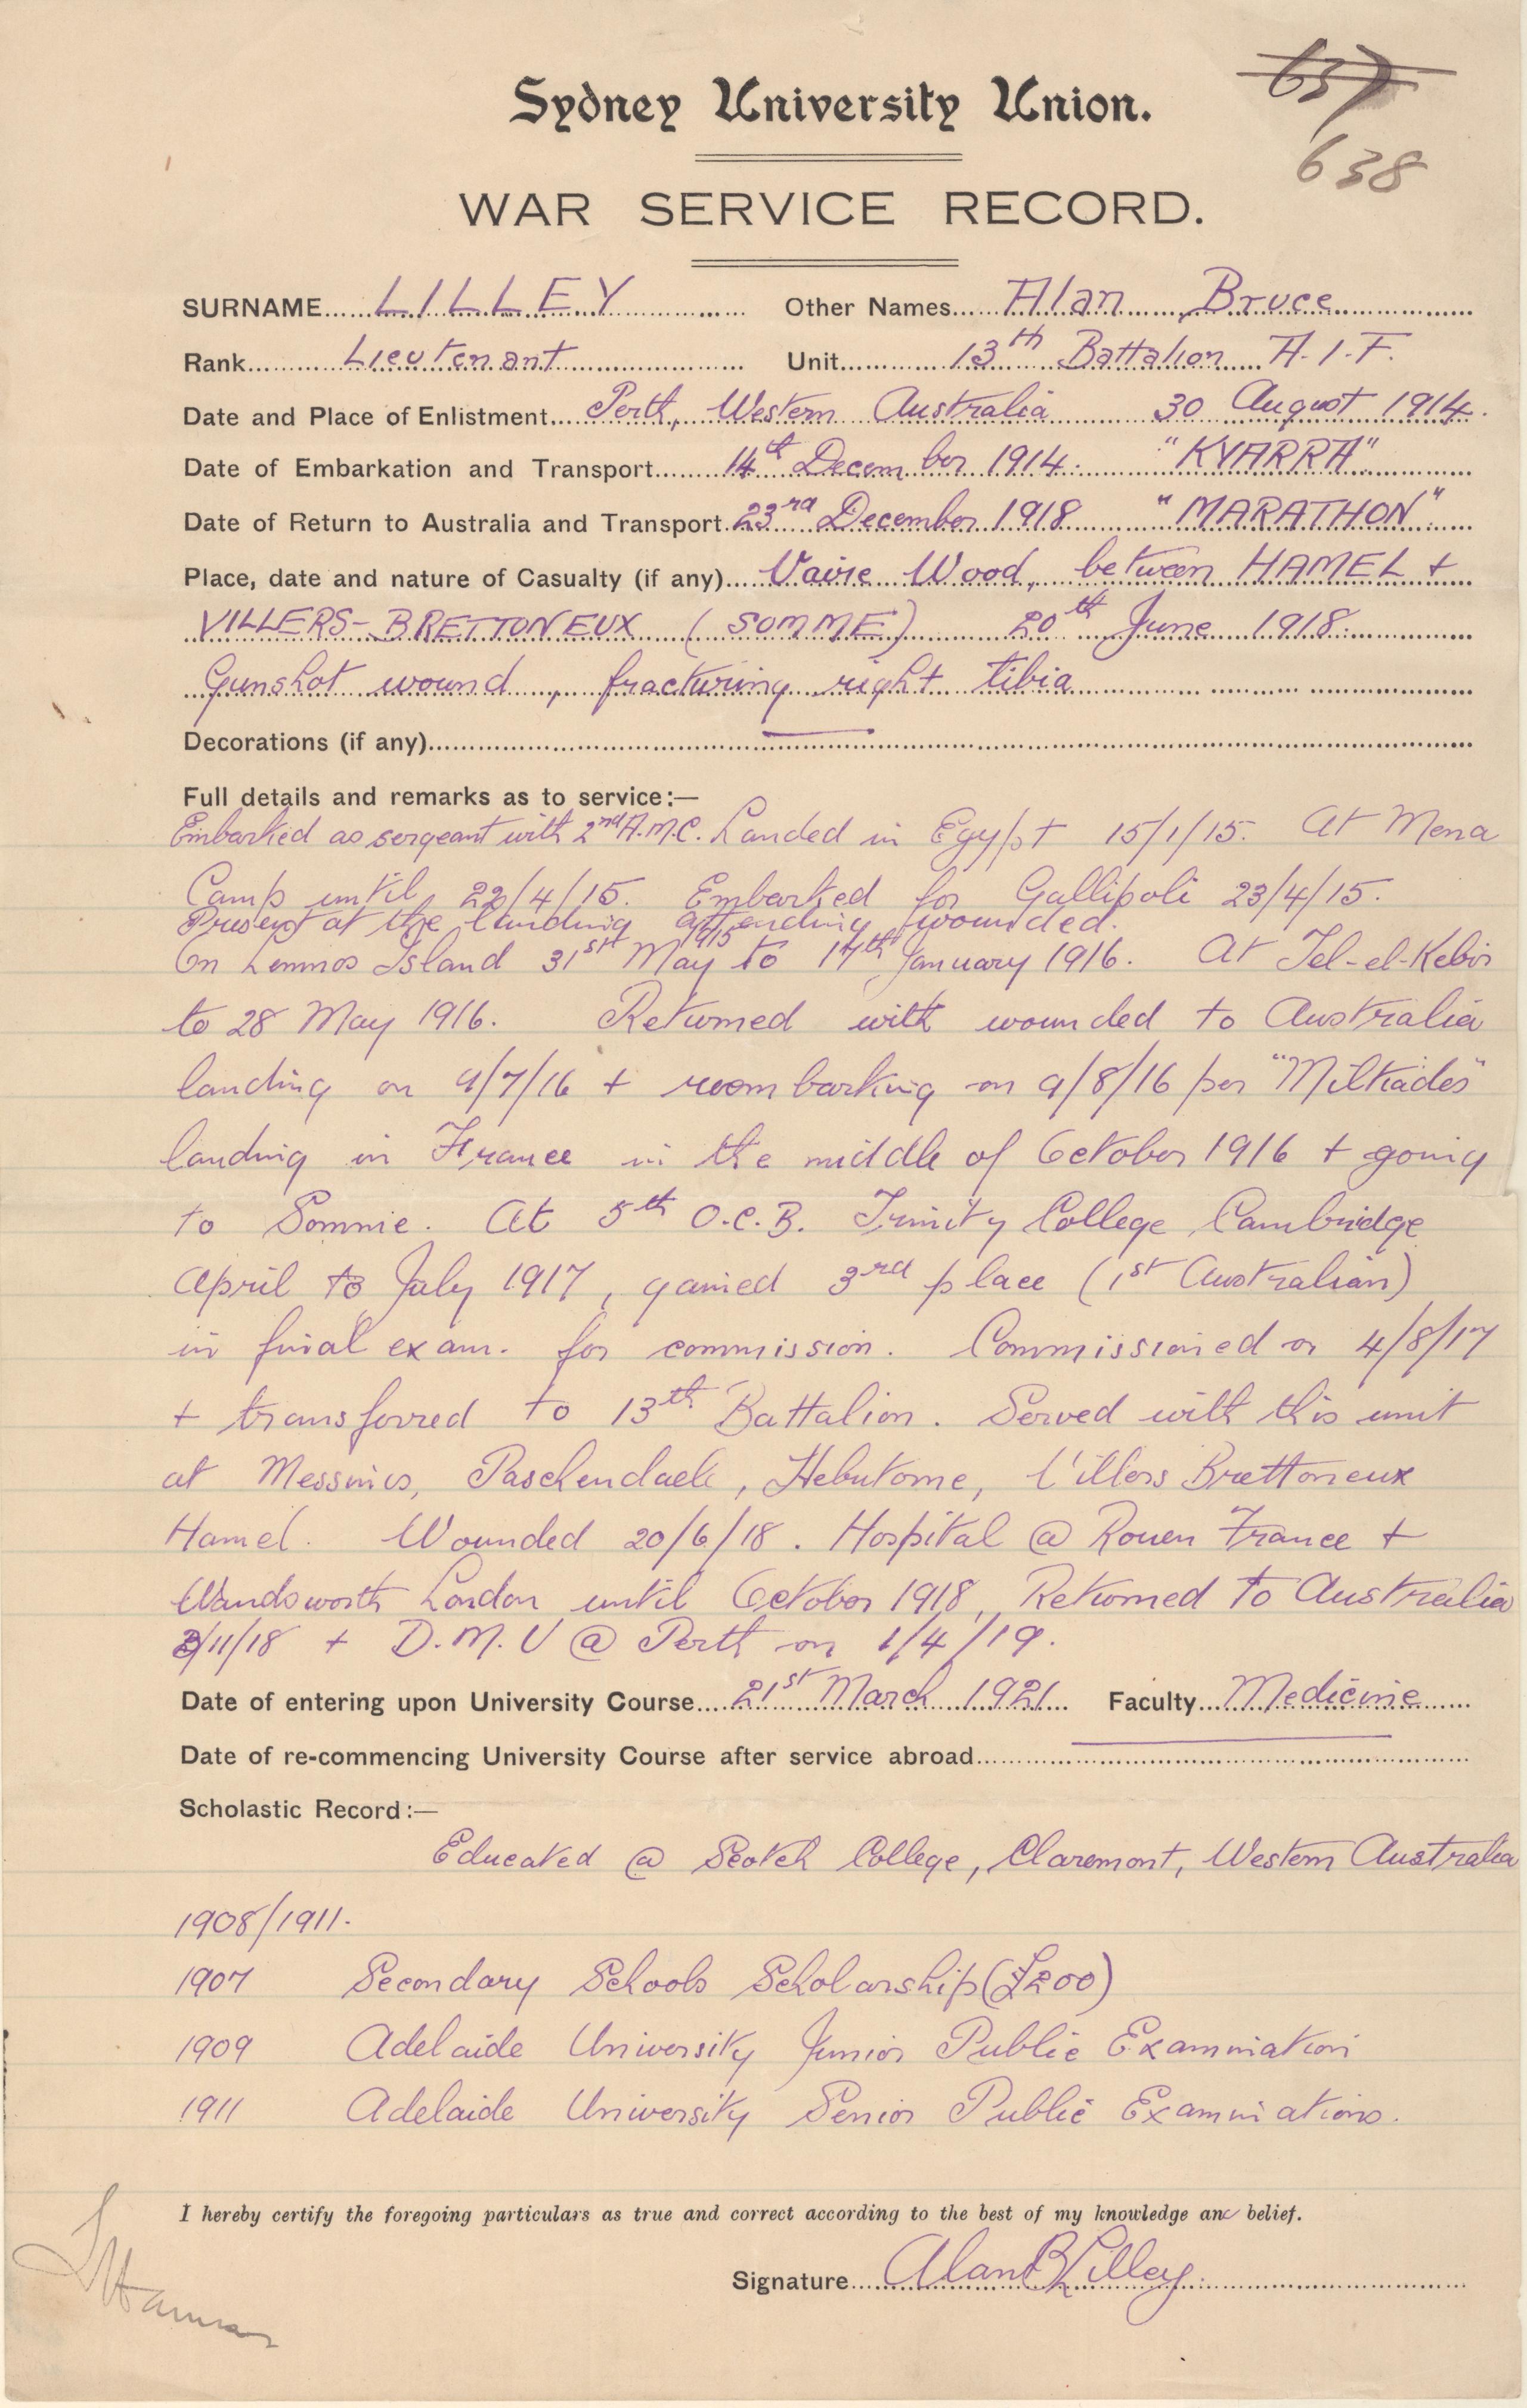 637
Sydney University Union.
638
WAR SERVICE RECORD.
SURNAME LILLEY Other Names Alan Bruce
Rank Lieutenant Unit 13th Battalion A.I.F.
Date and Place of Enlistment Perth, Western Australia 30 August 1914.
Date of Embarkation and Transport 14th December 1914. "KYARRA"
Date of Return to Australia and Transport 23rd December 1918 "MARATHON"
Place, date and nature of Casualty (if any) Vaire Wood, between HAMEL +
VILLERS-BRETTONEUX (SOMME) 20th June 1918.
Gunshot wound, fracturing right tibia
Decorations (if any) —
Full details and remarks as to service:—
Embarked as sergeant with 2nd A.M.C. Landed in Egypt 15/1/15. At Mena
Camp until 22/4/15. Embarked for Gallipoli 23/4/15.
Present at the landing attending wounded.
On Lemnos Island 31st May 1915 to 17th January 1916. At Tel-el-Kebir
to 28 May 1916. Returned with wounded to Australia
landing on 4/7/16 + reembarking on 9/8/16 per "Miltiades"
landing in France in the middle of October 1916 + going
to Somme. At 5th O.C.B. Trinity College Cambridge
April to July 1917, gained 3rd place (1st Australian)
in final exam. for commission. Commissioned on 4/8/17
+ transferred to 13th Battalion. Served with this unit
at Messines, Paschendaele, Hebuterne, Villers Brettoneux
Hamel. Wounded 20/6/18. Hospital @ Rouen France +
Wandsworth London until October 1918, Returned to Australia
/11/18 + D.M.U @ Perth on 1/4/19.
Date of entering upon University Course 21st March 1921. Faculty Medicine
Date of re-commencing University Course after service abroad —
Scholastic Record:—
Educated @ Scotch College, Claremont, Western Australia
1908/1911.
1907 Secondary Schools Scholarship (£200)
1909 Adelaide University Junior Public Examination
1911 Adelaide University Senior Public Examinations.
I hereby certify the foregoing particulars as true and correct according to the best of my knowledge and belief.
Signature Alan B Lilley.